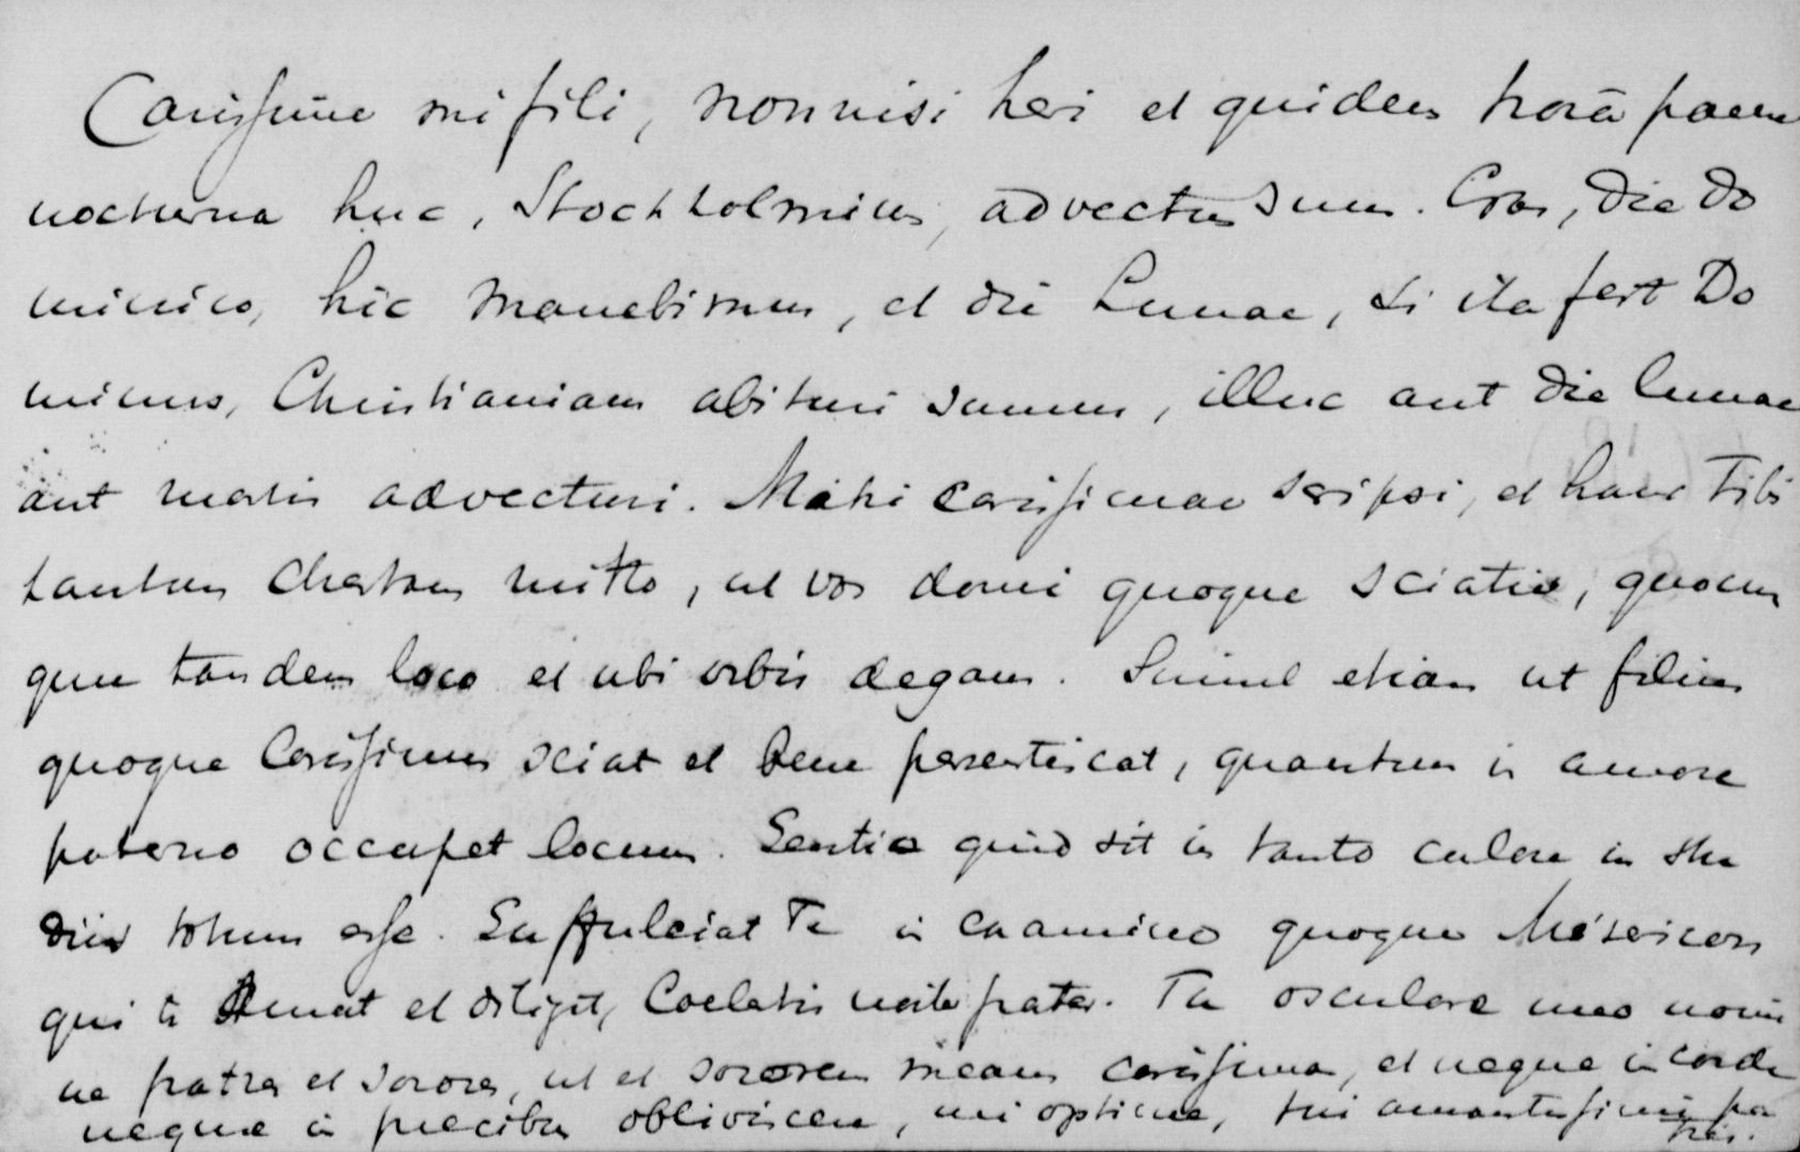 Carissime mi fili, nonnisi heri et quidem horâ paene
nocturna huc, Stockholmiam, advectus sum. Cras, die Do
minico, hic manebimus, et die Lunae, si ita fert Do
minus, Christianiam abituri sumus, illuc aut die lunae
aut martis advecturi. Matri carissimae scripsi, et hanc Tibi
tantum chartam mitto, ut vos domi quoque sciatis, quocun
que tandem loco et ubi orbis degam. Simul etiam ut filius
quoque carissimus sciat et bene persentiscat, quantum in amore
paterno occupet locum. Sentio quid sit in tanto calore in stu
diis totum esse. Suffulciat Te in examine quoque Misericors
qui te amat et diligit, Coelestis noster pater. Tu osculare meo nomi
ne fratres et sorores, ut et sororem meam carissimam, et neque in corde
neque in precibus obliviscere, mi optime, tui amantissimi pa
tris.